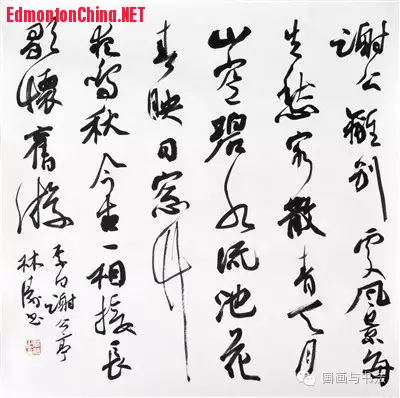 EdmontonChina.NET
EdmontonChina.NET
謝公離別處风景每
生愁客散青天月
山空碧水流池花
春映日窓竹
夜鸣秋今古一相接長
歌懷舊游
李白謝公亭
林书
国画与书法